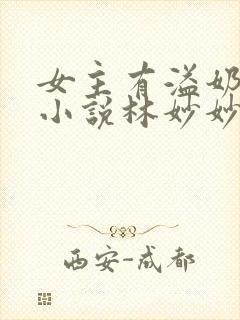 女主有溢奶
小说林妙妙
西安-成都